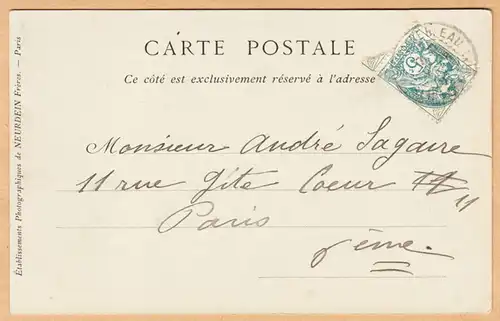 CARTE POSTALE
Ce côté est exclusivement réservé à l'adresse
Monsieur André Sagaire
11 rue Gîte Coeur
11
Paris
ème
Établissements Photographiques de NEURDEIN Frères. — Paris